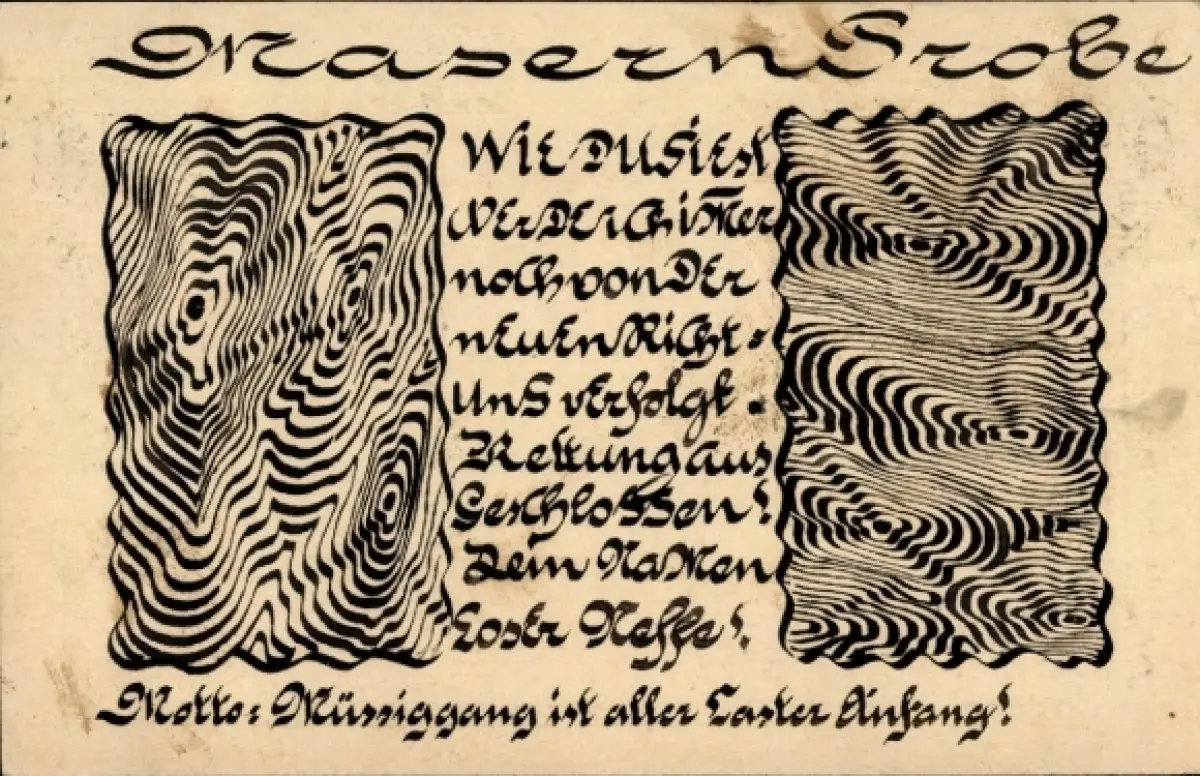 Masern Probe
Wie Du siest
werde ich im̅er
noch von der
neuen Richt=
uns verfolgt.
Rettung aus
geschlossen!
Dein
Neffe!
Motto: Müssiggang ist aller Laster Anfang!